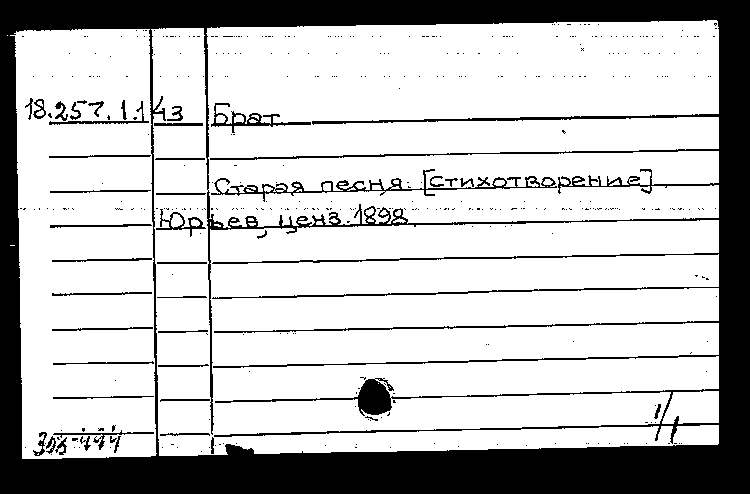 18.257.1.143 Брат.
Старая песня. [Стихотворение].
Юрьев, ценз. 1898.
1/1